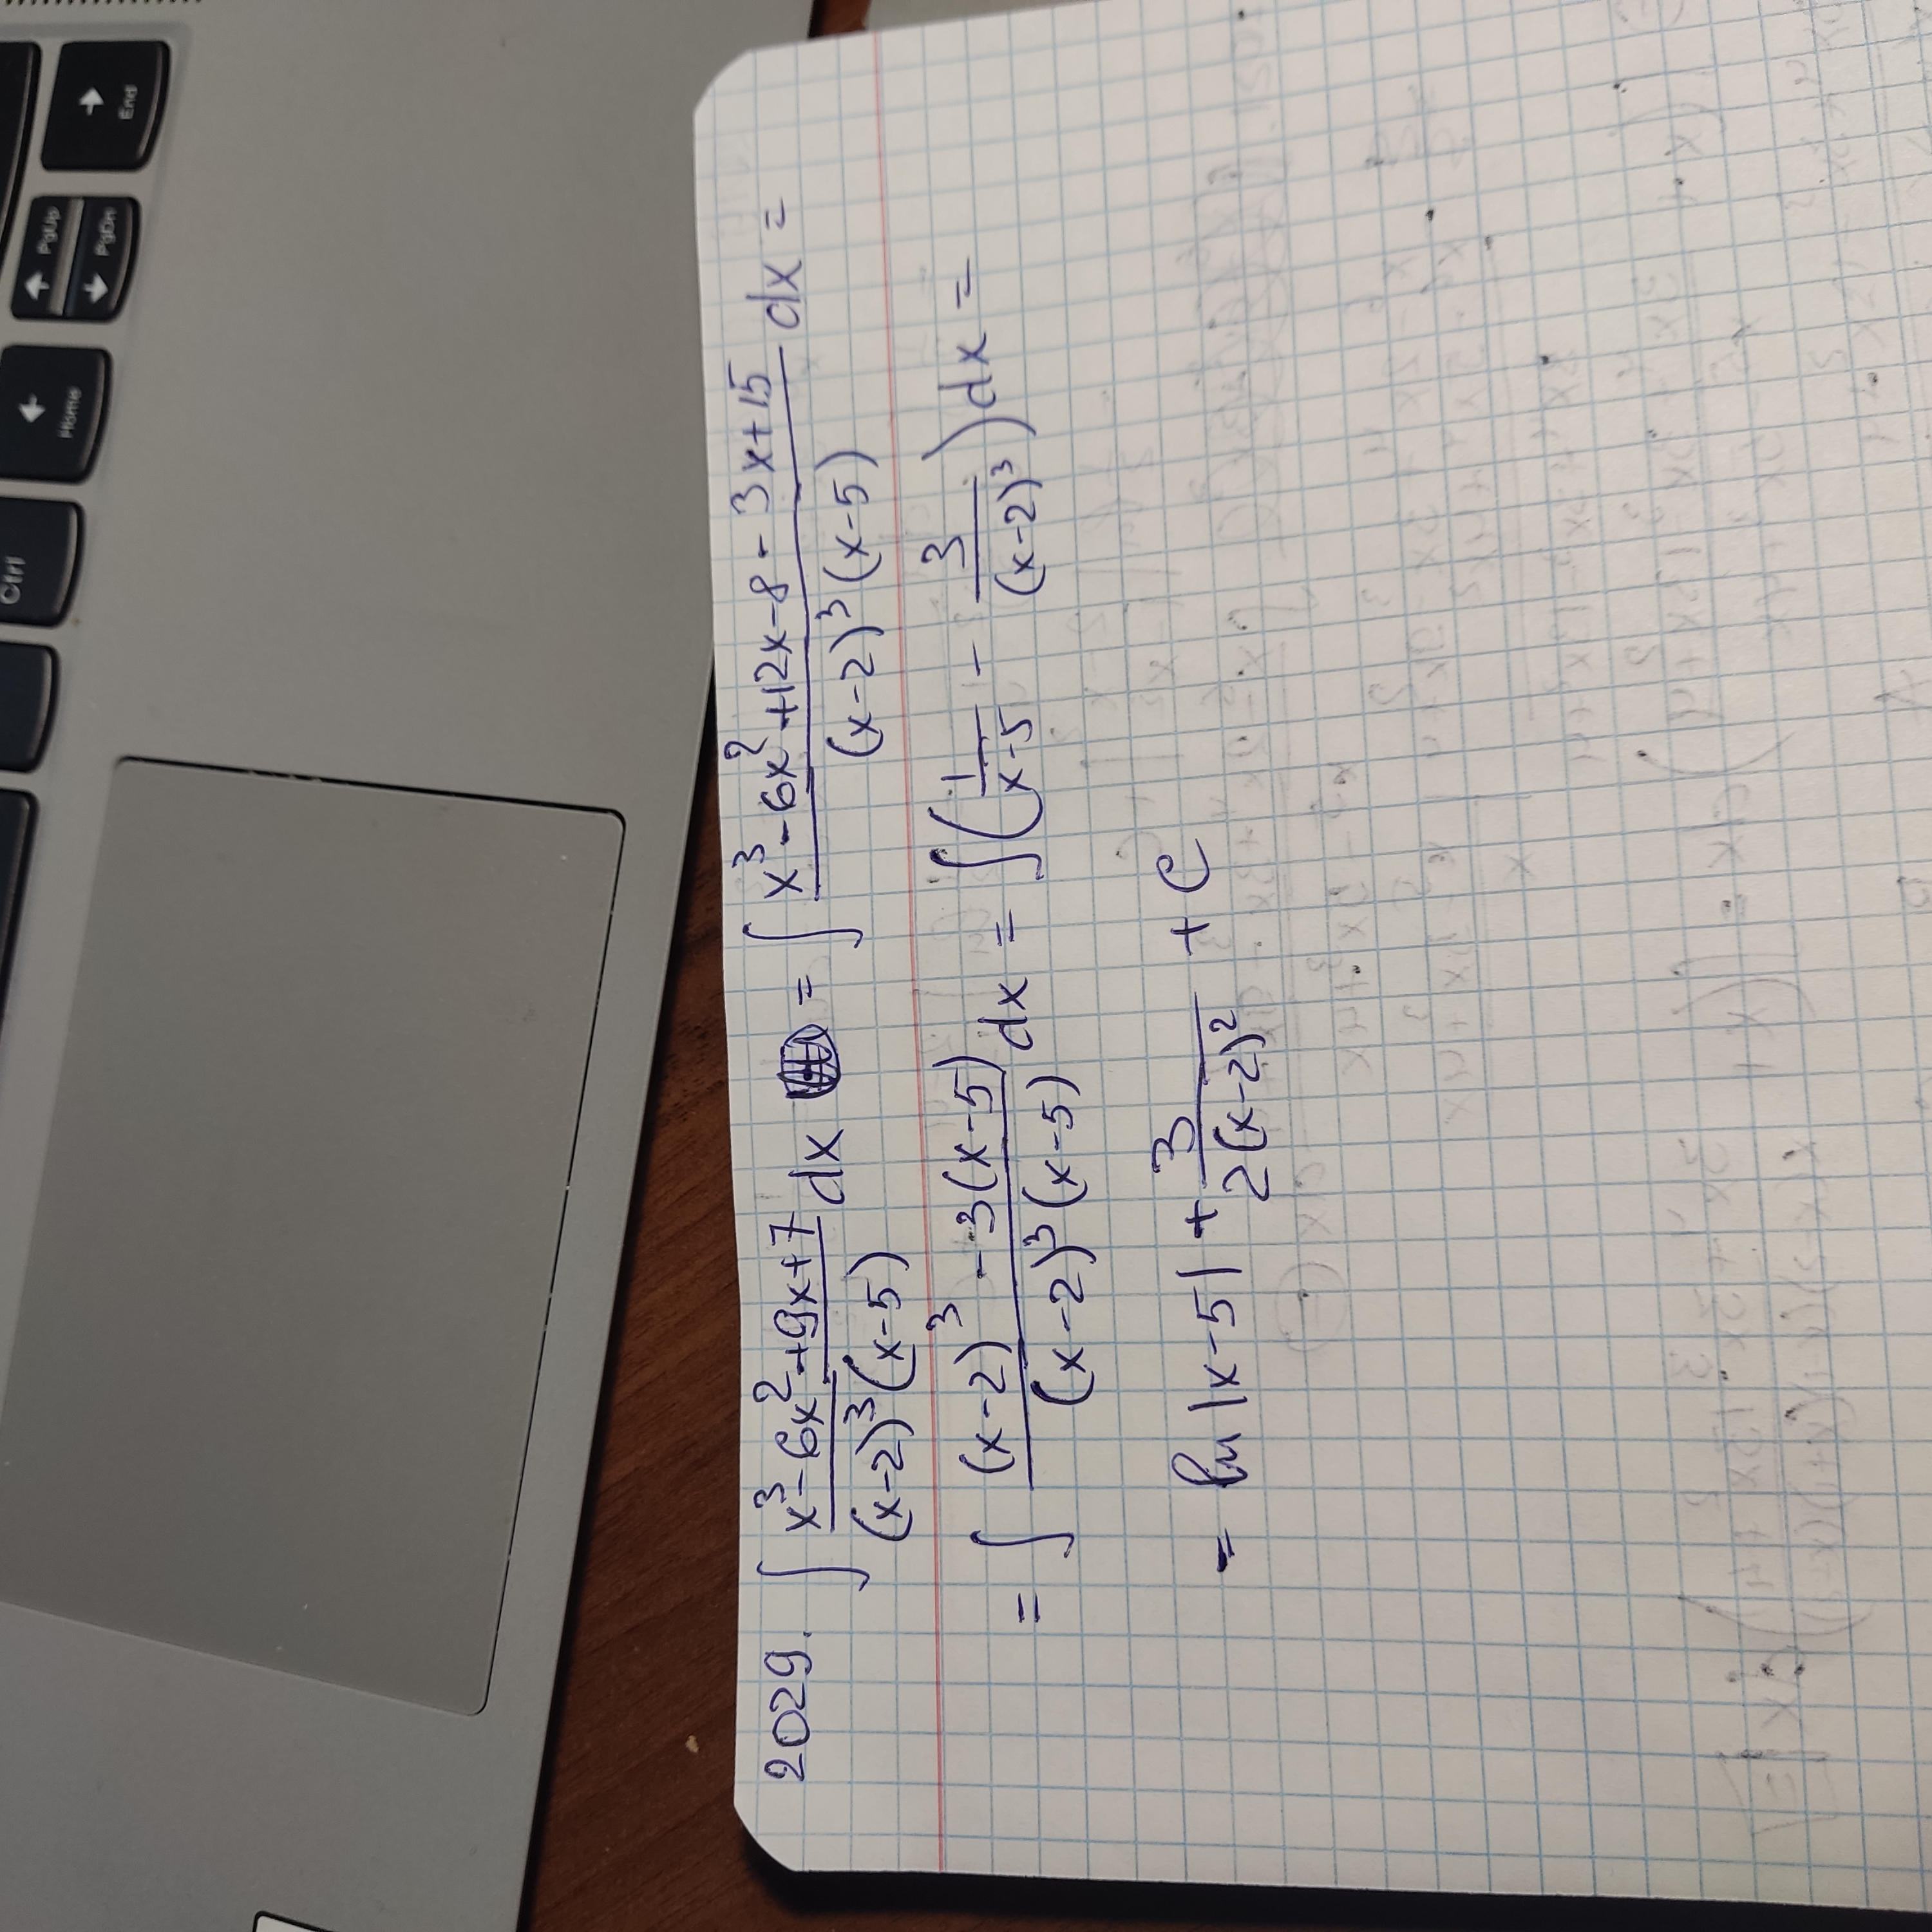 Ctrl
← Home
↑ PgUp
↓ PgDn
→ End
2029. ∫ (x³-6x²+9x+7)/((x-2)³(x-5)) dx = ∫ (x³-6x²+12x-8-3x+15)/((x-2)³(x-5)) dx =
= ∫ ((x-2)³-3(x-5))/((x-2)³(x-5)) dx = ∫(1/(x-5) - 3/(x-2)³)dx =
= ln|x-5| + 3/(2(x-2)²) + C